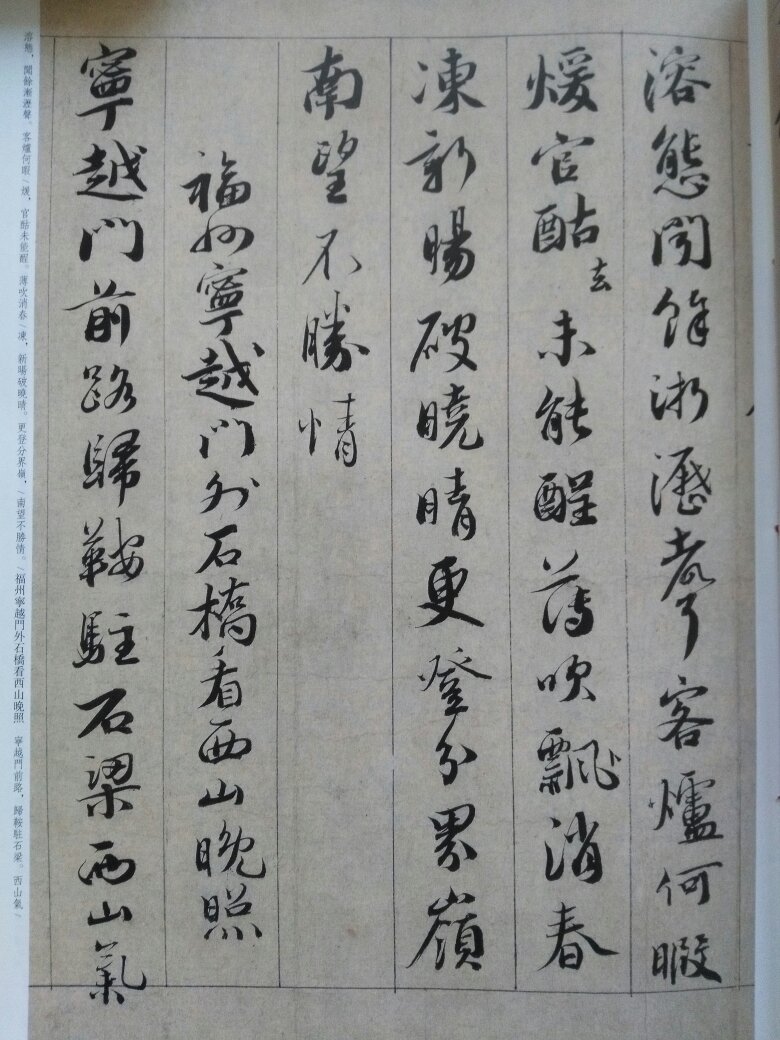 溶態聞餘淅瀝聲客爐何暇
煖官酤去未能醒薄吹飄消春
凍新暘破曉晴更登分界嶺
南望不勝情
福州寧越門外石橋看西山晚照
寧越門前路歸鞍駐石梁西山氣
溶態,聞餘淅瀝聲。客爐何暇/煖,官酤未能醒。薄吹消春/凍,新暘破曉晴。更登分界嶺,/南望不勝情。/福州寧越門外石橋看西山晚照 寧越門前路,歸鞍駐石梁。西山氣/